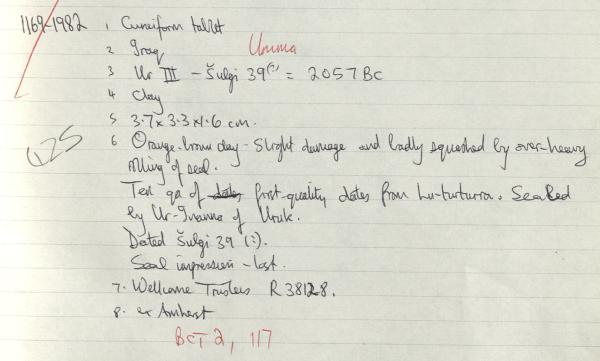 1169-1982 1 Cuneiform tablet
2 Iraq Umma
3 Ur III – Šulgi 39(?) = 2057 BC
4 Clay
5 3.7 x 3.3 x 1.6 cm.
6 Orange-brown clay - Slight damage and badly squashed by over-heavy
rolling of seal.
625
Ten qa of dates first-quality dates from Lu-turturra. Sealed
by Ur-Inanna of Uruk.
Dated Šulgi 39 (?).
Seal impression - lost.
7. Wellcome Trustees R 38128.
8. ex Amherst
BCT 2, 117